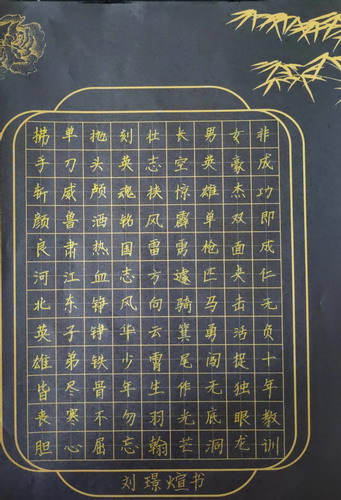 非成功即成仁无负十年教训
女豪杰双面夹击活捉独眼龙
男英雄单枪匹马勇闯无底洞
长空惊霹雳遽骑箕尾作光芒
壮志挟风雷方向云霄生羽翰
刻英魂铭国志风华少年勿忘
抛头颅洒热血铮铮铁骨不屈
单刀威鲁肃江东子弟尽寒心
拂手斩颜良河北英雄皆丧胆
刘璟煊书